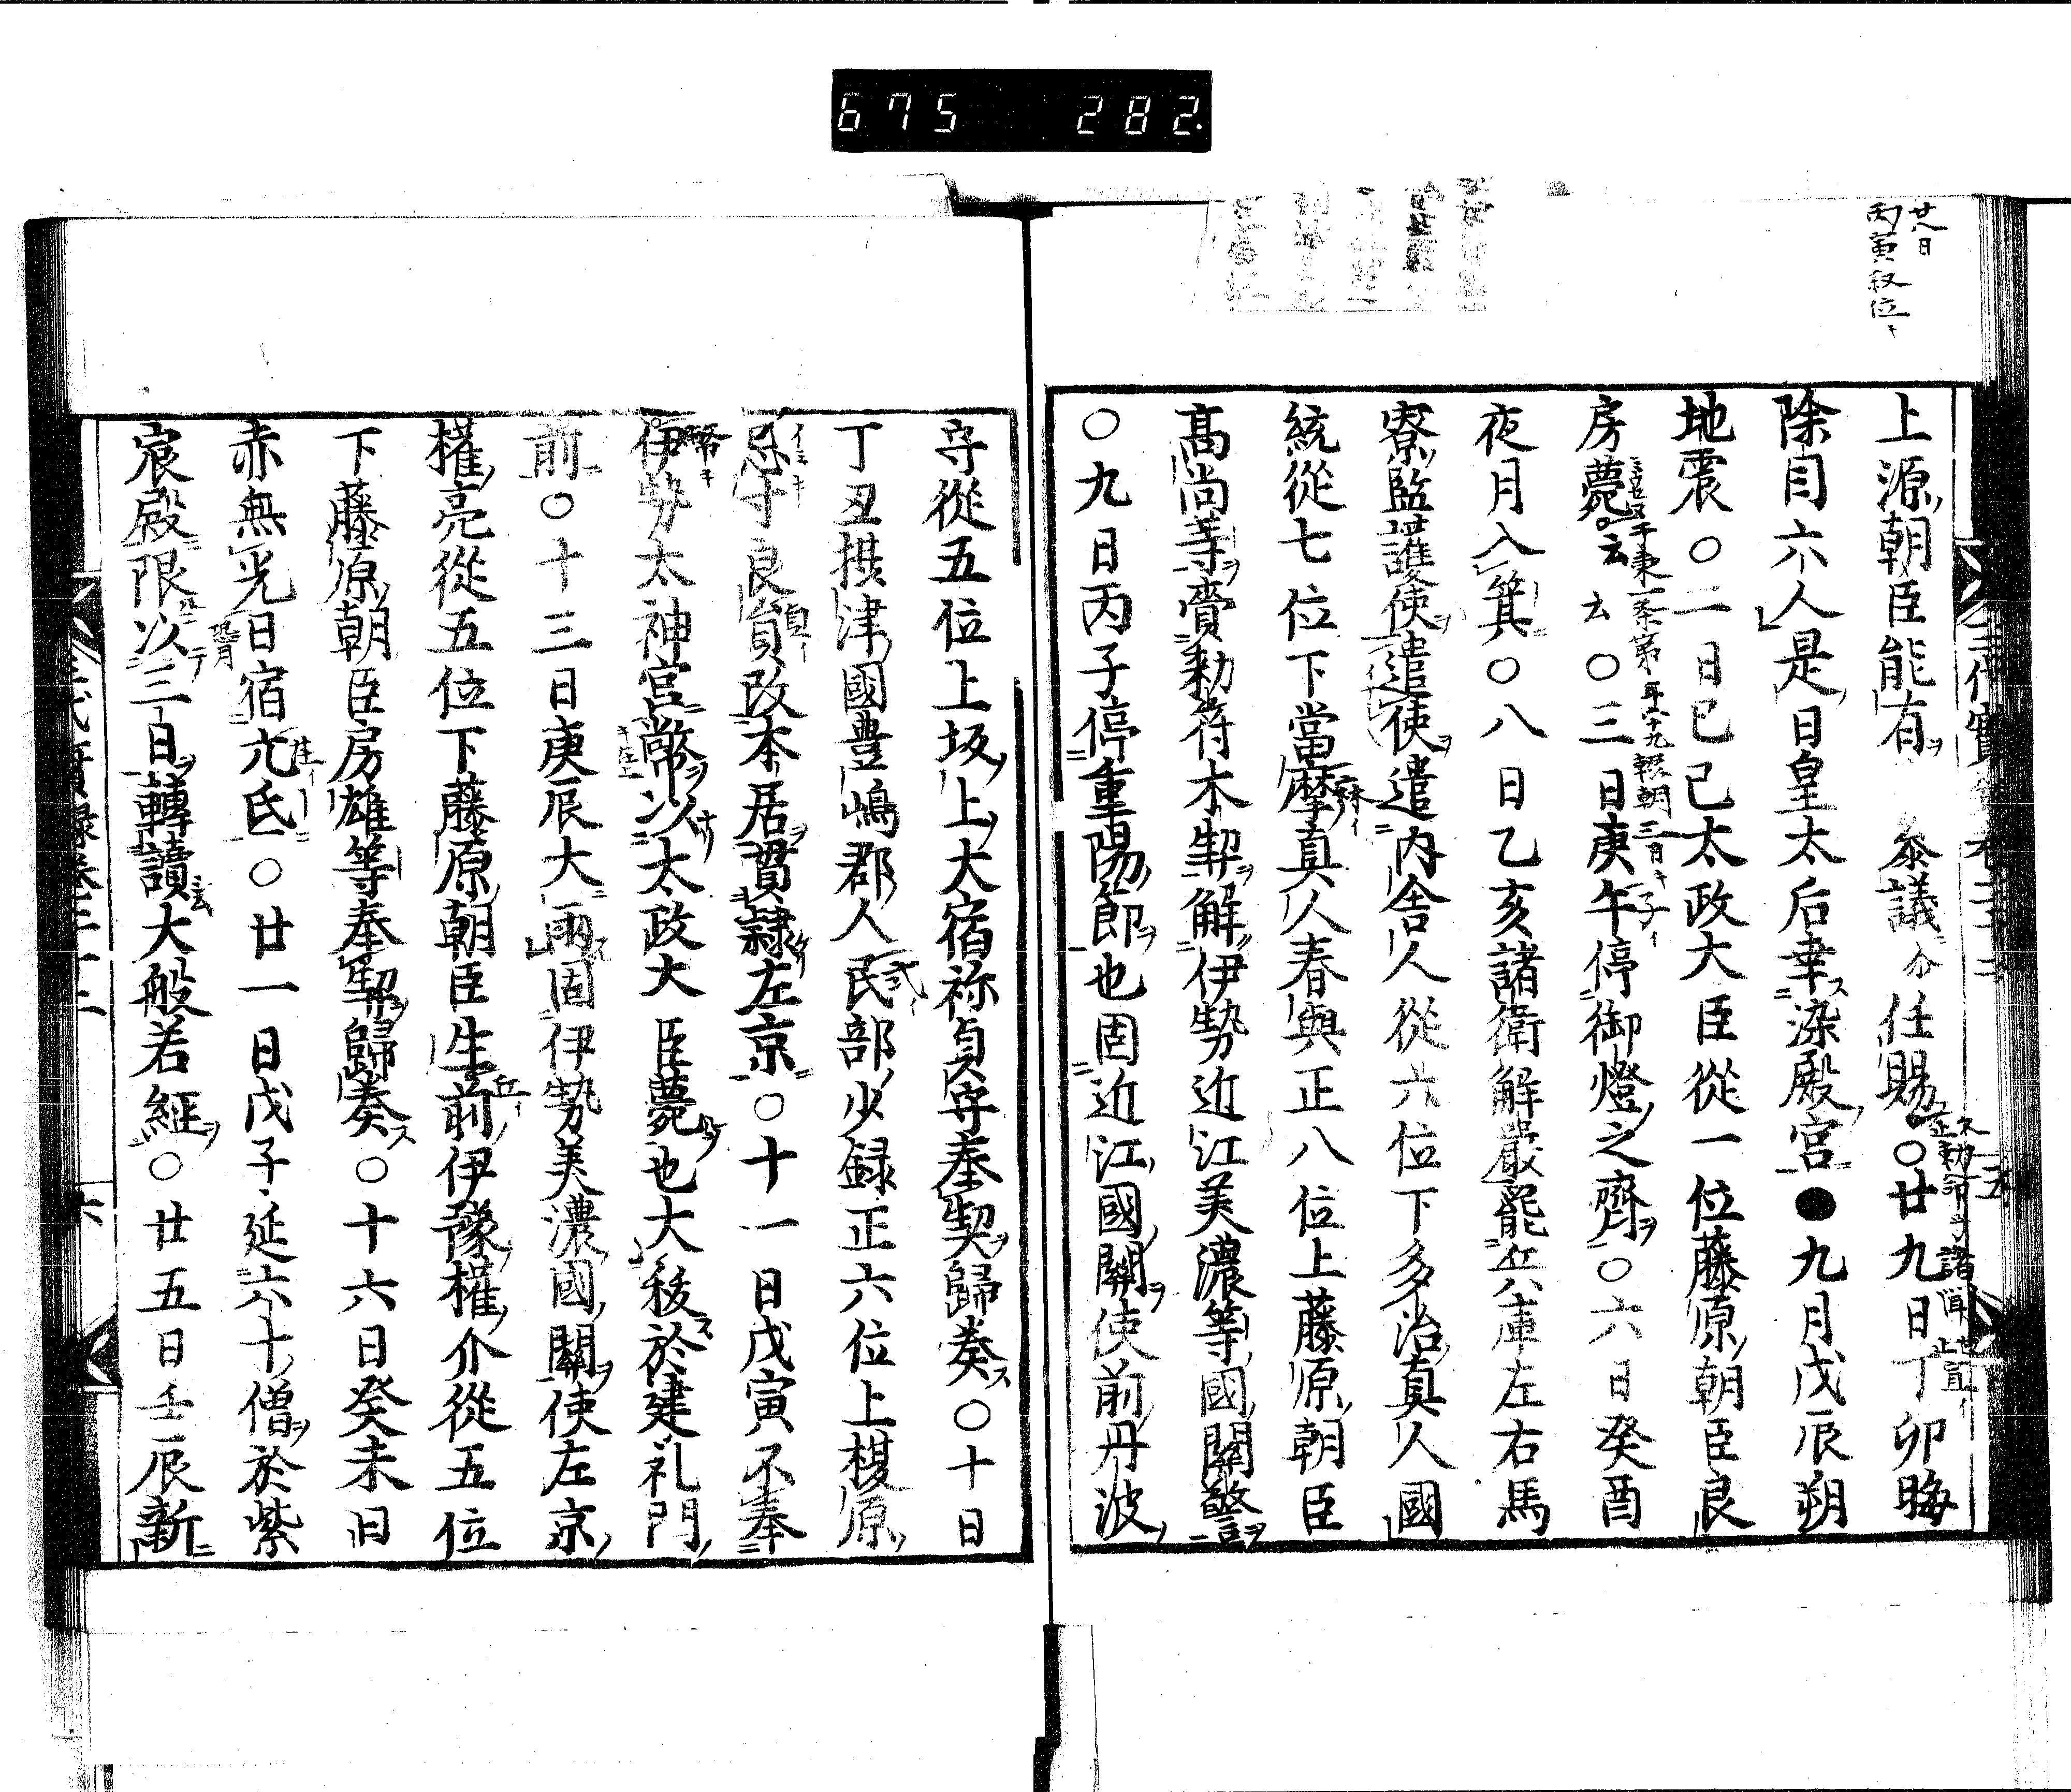 675 282
廿八日
丙寅叙位
上源朝臣能有 参議 任賜○廿九日丁卯晦
除目六人是日皇太后幸染殿宮●九月戊辰朔
地震○二日己巳太政大臣從一位藤原朝臣良
房薨云云○三日庚午停御燈之齊○六日癸酉
夜月入箕○八日乙亥諸衛解嚴罷兵庫左右馬
寮監護使遣使遣内舎人從六位下多治真人國
統從七位下當摩真人春與正八位上藤原朝臣
髙尚等賷勅符木契解伊勢近江美濃等國關警
○九日丙子停重陽節也固近江國關使前丹波
守從五位上坂上大宿祢貞守奉契歸奏○十日
丁丑摂津國豊嶋郡人民部少録正六位上榎原
忌寸良貟改本居貫隷左京○十一日戊寅不奉
伊勢太神宮幣以太政大臣薨也大祓於建礼門
前○十三日庚辰大雨固伊勢美濃國關使左京
權亮從五位下藤原朝臣生前伊豫權介從五位
下藤原朝臣房雄等奉契歸奏○十六日癸未日
赤無光日宿亢氐○廿一日戊子延六十僧於紫
宸殿限以三日轉讀大般若經○廿五日壬辰新
六